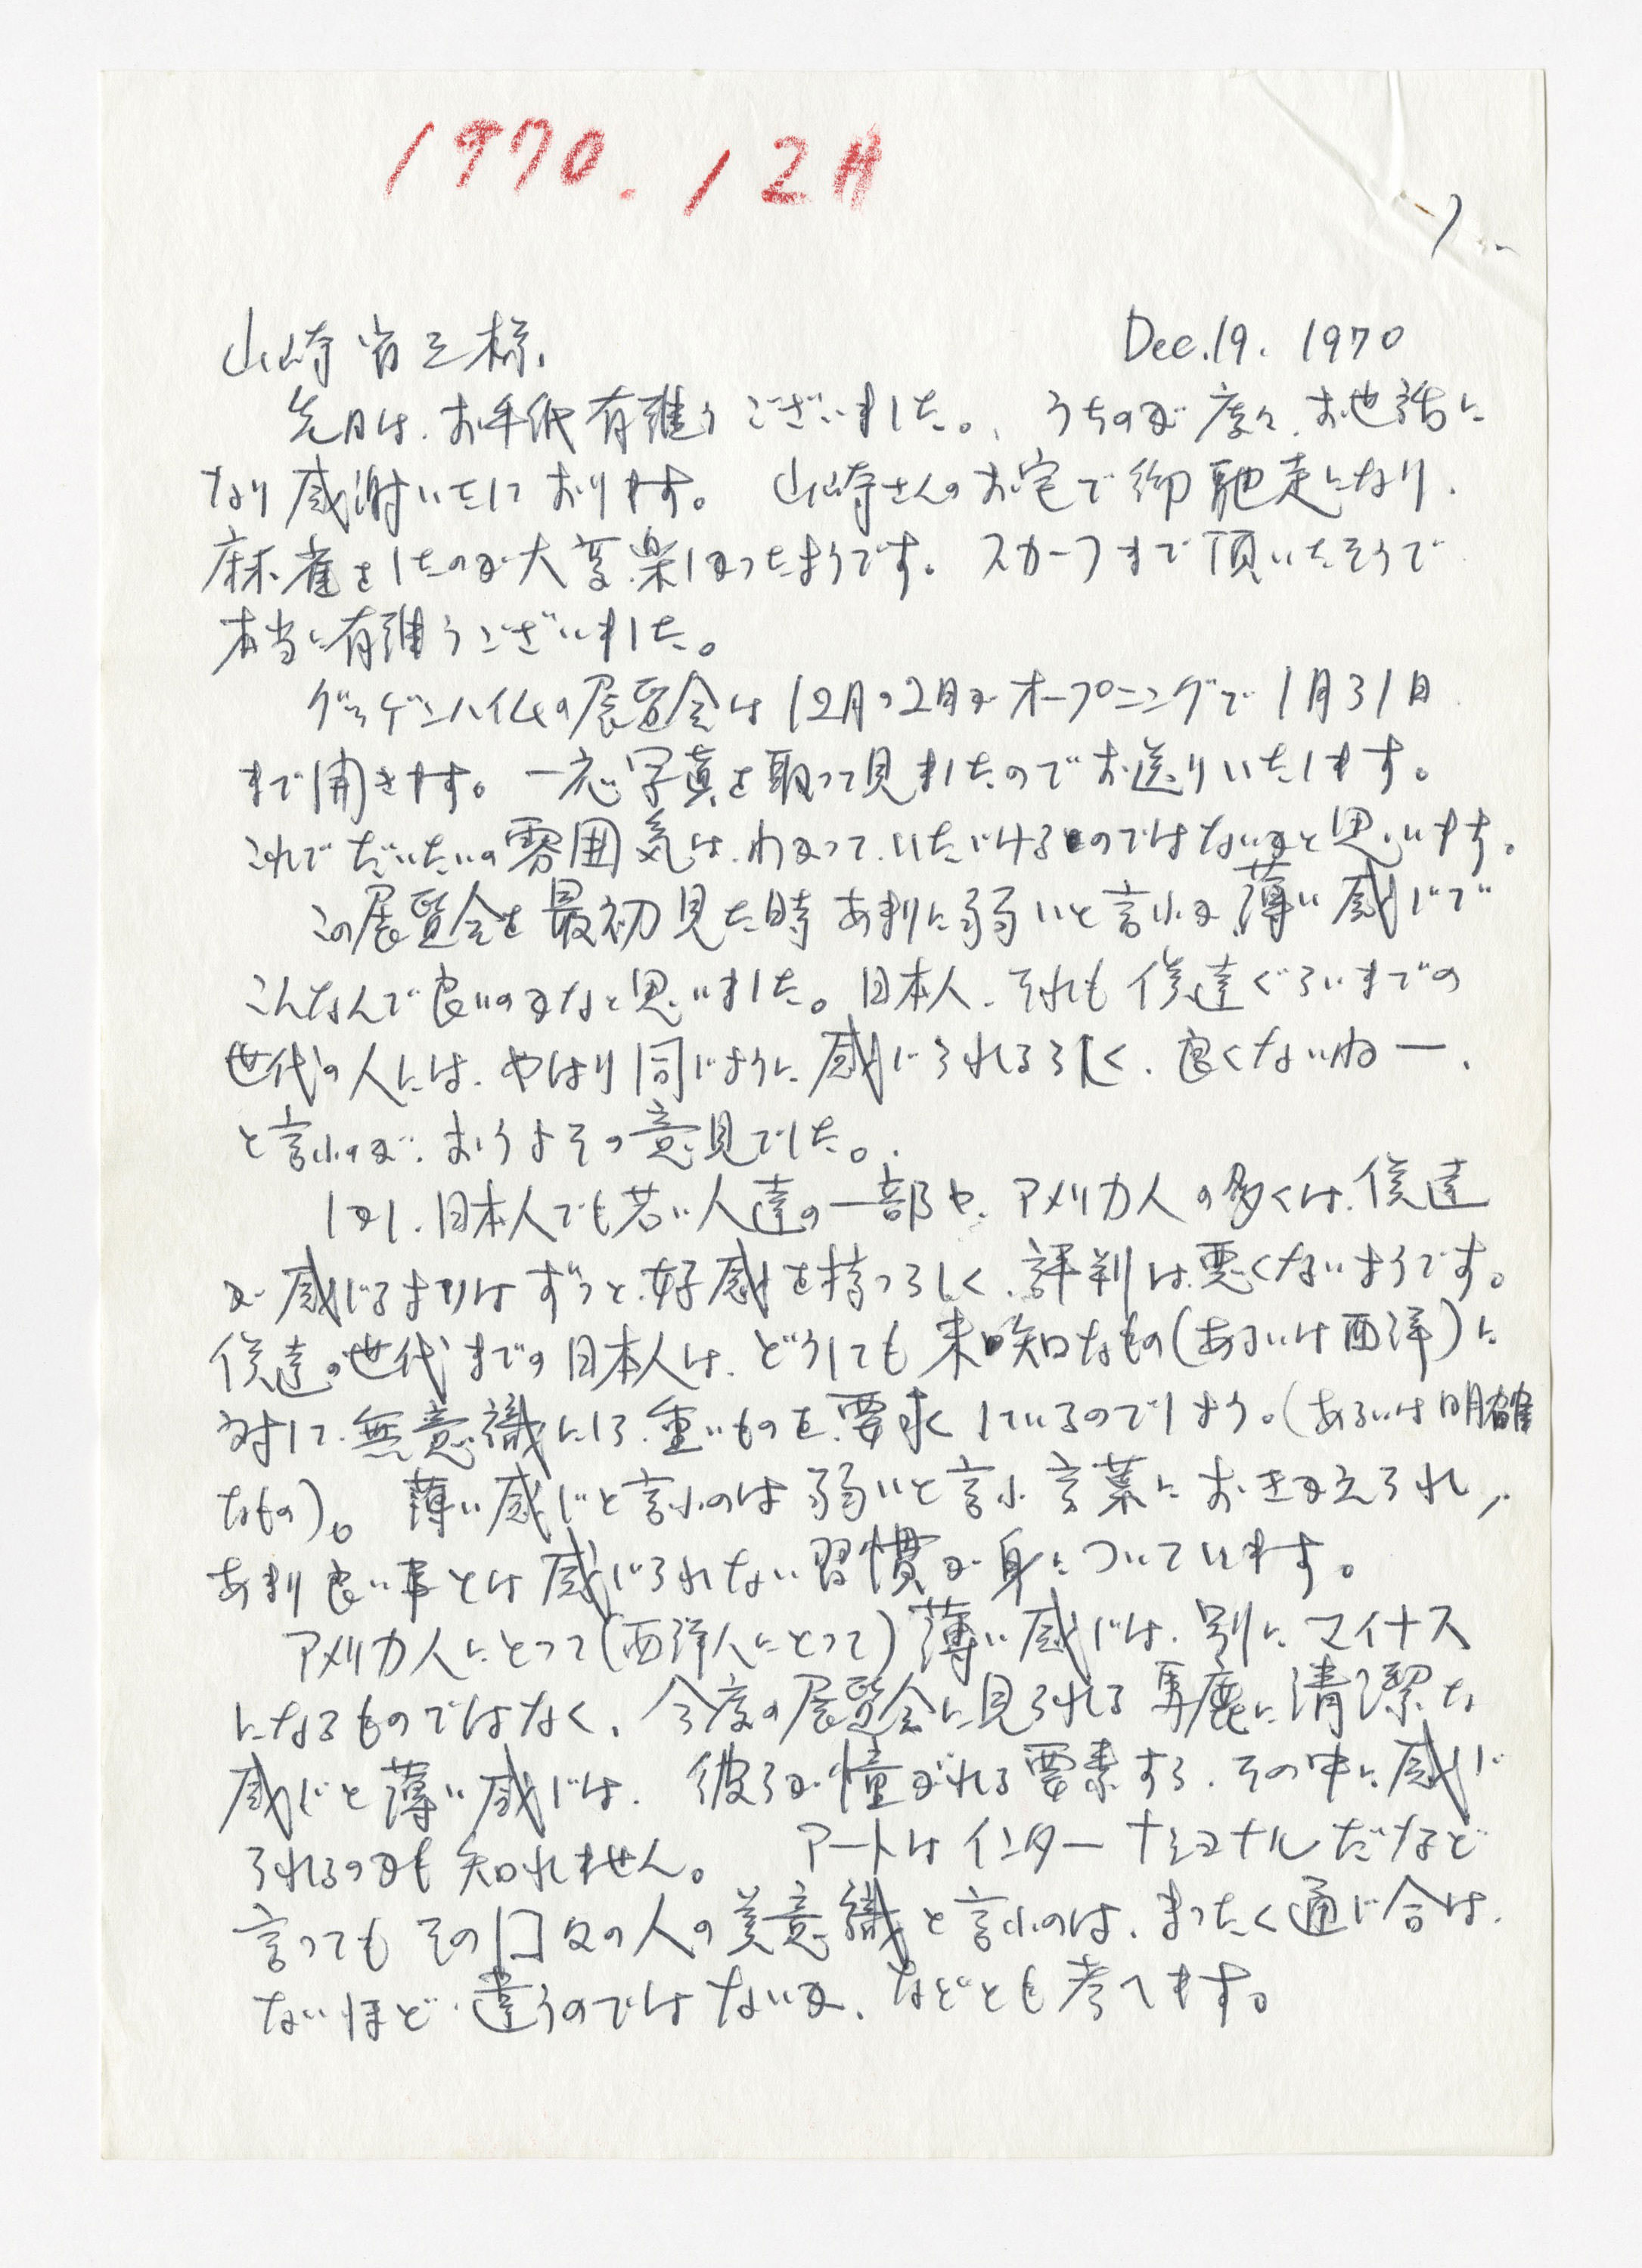 1970.12月
1
山崎省三様、
Dec.19. 1970
先日は、お手紙有難うございました。、うちのが度々、お世話に
なり感謝いたしております。 山崎さんのお宅で御馳走になり、
麻雀をしたのが大変楽しかったようです。スカーフまで頂いたそうで
本当に有難うございました。
グッゲンハイムの展覧会は12月の2日がオープニングで1月31日
まで開きます。一応写真を取って見ましたのでお送りいたします。
これでだいたいの雰囲気は、わかって、いただけるのではないかと思います。
この展覧会を最初見た時あまりに弱いと言ふか、薄い感じで
こんなんで良いのかなと思いました。日本人、それも俺達ぐらいまでの
世代の人には、やはり同じように感じられるらしく、良くないねー、
と言ふのが、おうよその意見でした。
しかし、日本人でも若い人達の一部や、アメリカ人の多くは、俺達
が感じるよりはずっと、好感を持つらしく、評判は、悪くないようです。
俺達の世代までの日本人は、どうしても未知なもの(あるいは西洋)に
対して、無意識にしろ、重いものを、要求しているのでしょう。(あるいは明確
なもの)。 薄い感じと言ふのは弱いと言ふ言葉におきかえられ、
あまり良い事とは感じられない習慣が身についています。
アメリカ人にとって(西洋人にとって)薄い感じは、別に、マイナス
になるものではなく、今度の展覧会に見られる馬鹿に清潔な
感じと薄い感じは、 彼らが憧がれる要素すら、その中に感じ
られるのかも知れません。 アートはインターナショナルだなど
言ってもその国々の人の美意識と言ふのは、まったく通じ合は、
ないほど、違うのではないか、などとも考へます。